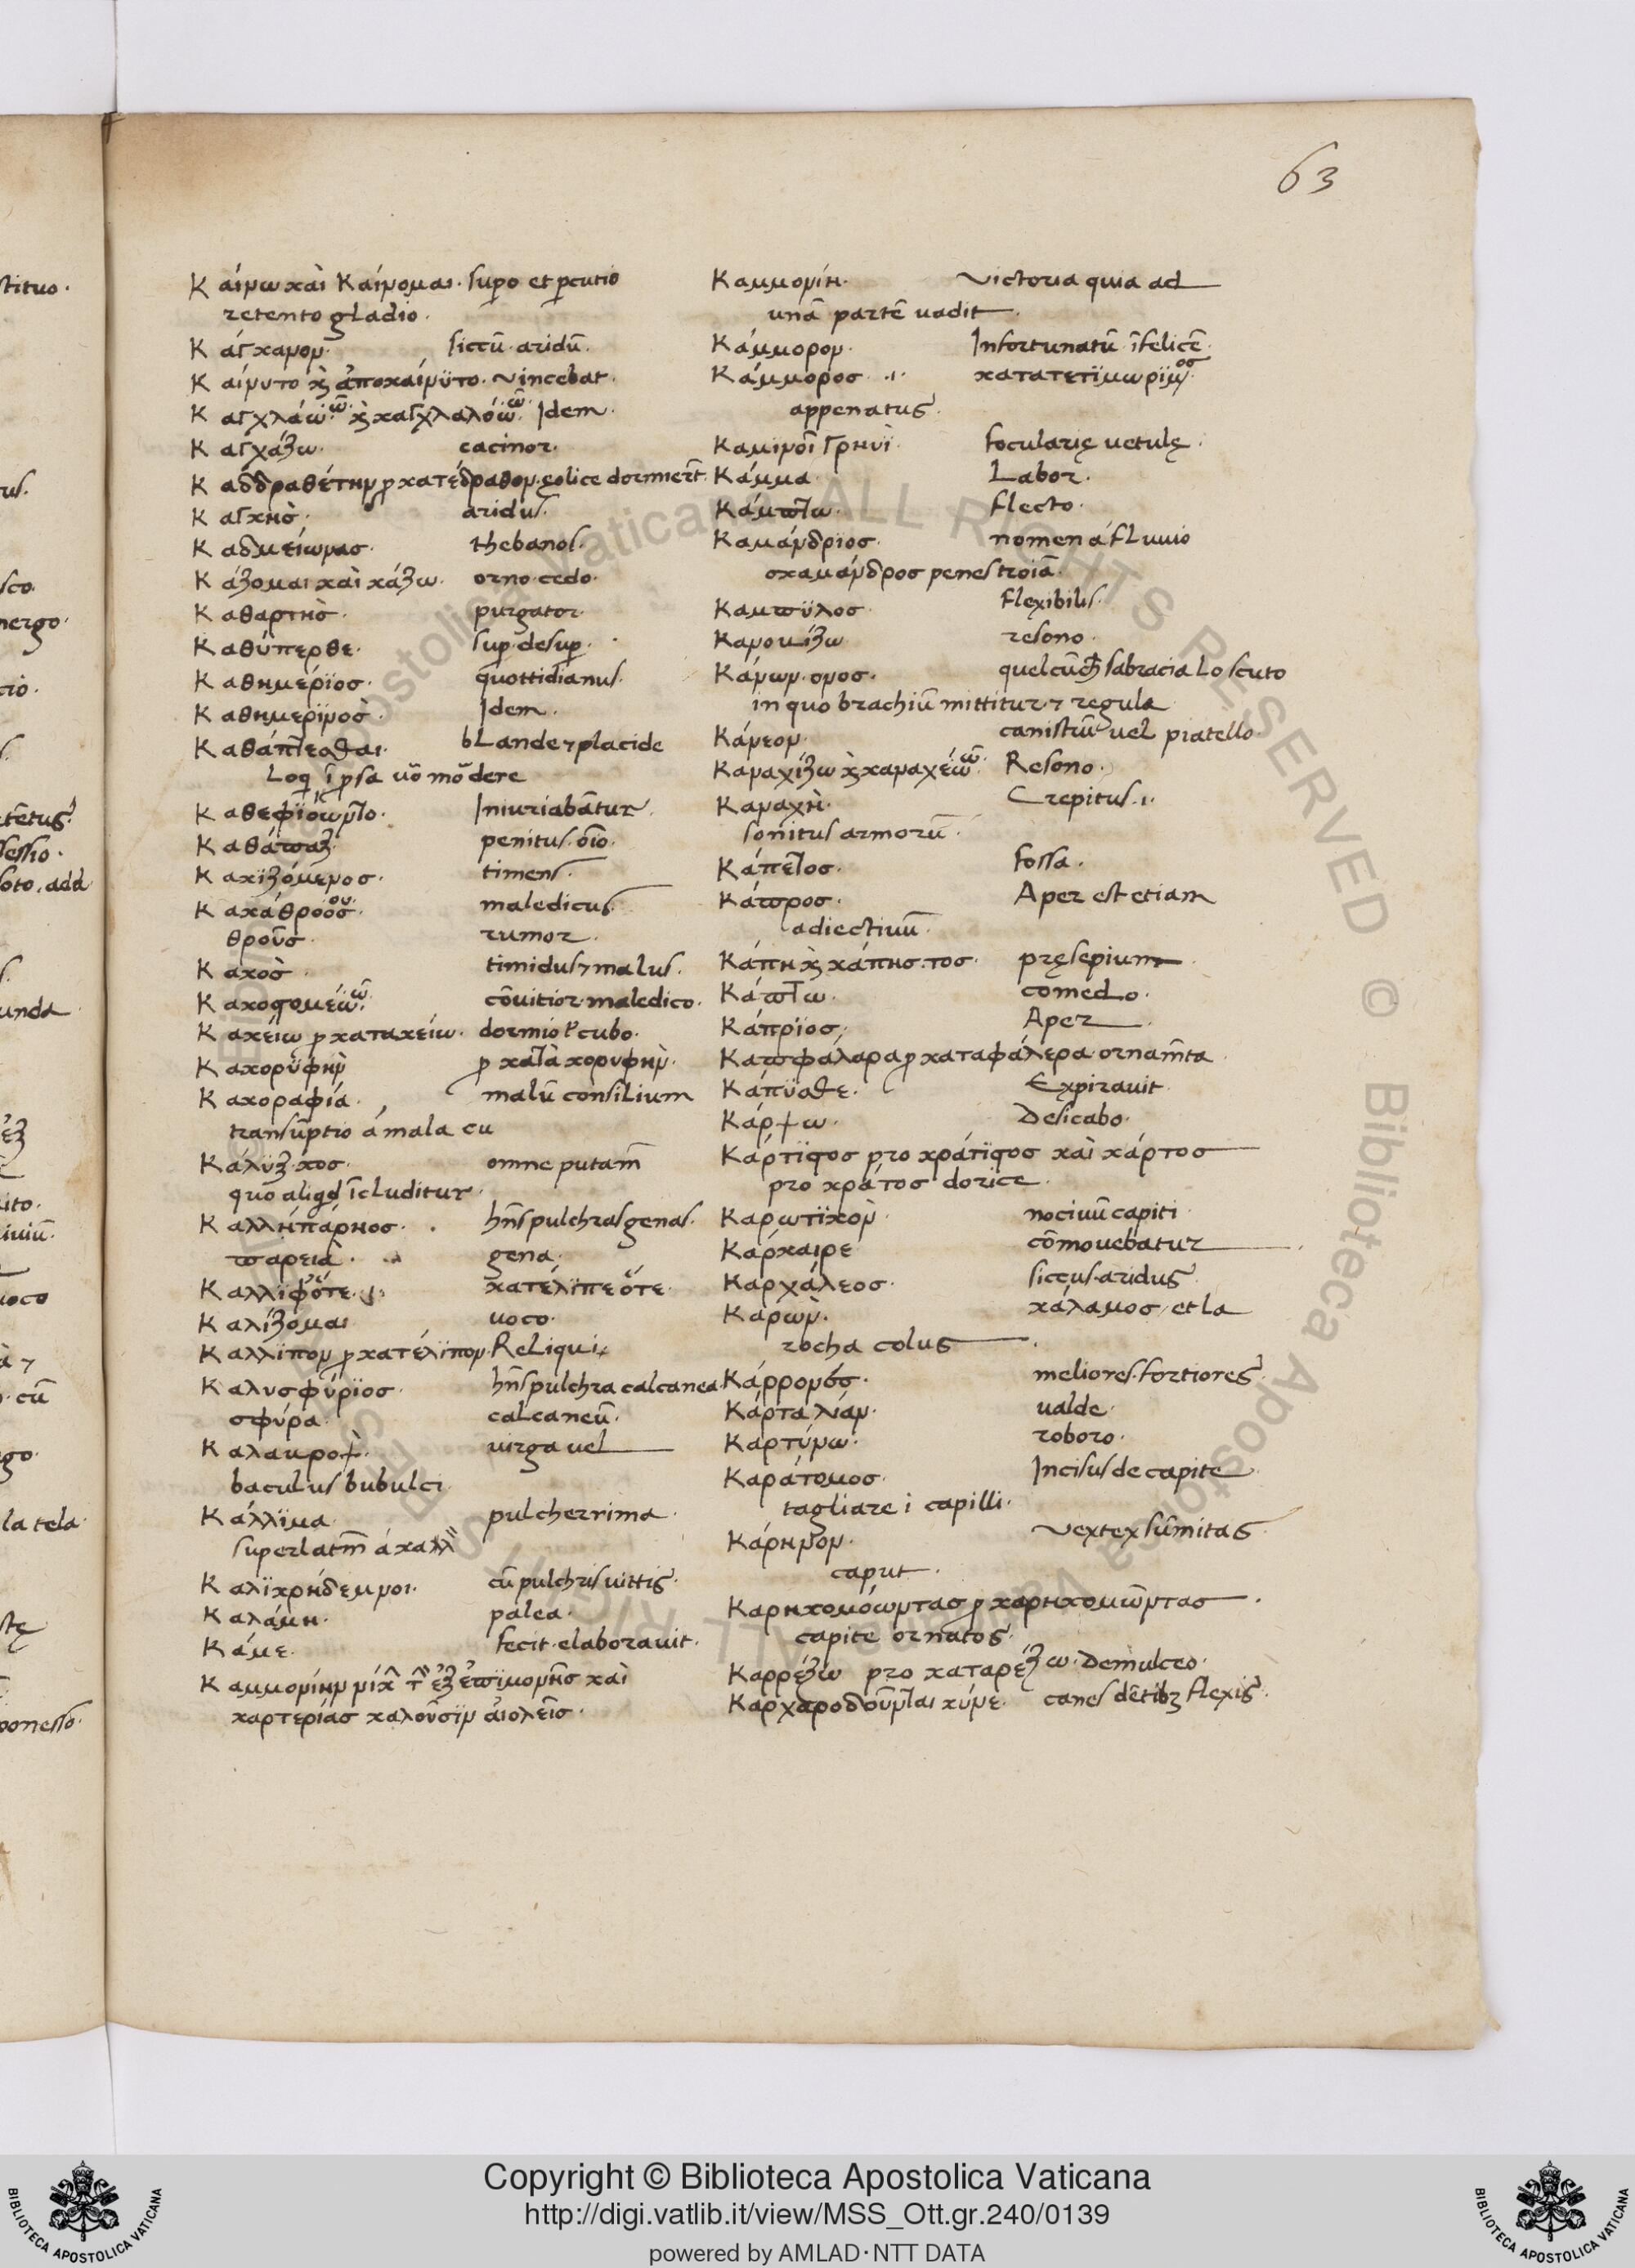 63
Καίνω καὶ Καίνομαι. supo et pcutio
retento gladio.
Κάγκανον. siccū. aridū.
Καίνυτο κ̀ ἀποκαίνϋτο. vincebat.
Καγχλάω. ῶ. κ̀ καγχλαλόω. ῶ. Idem.
Καγχάζω. cacinor.
Καδδραθέτην ꝓ κατέδραθον. ęolice dormiert̄.
Καγκὴς. aridus.
Καδμείωνας. thebanos.
Κάζομαι καὶ κάζω. orno. cedo.
Καθαρτὴς. purgator.
Καθύπερθε. sup. desup.
Καθημέρϊος. quottidianus.
Καθημερϊνὸς. Idem.
Καθάπτεσθαι. blande ⁊ placide
Loq̄
Καθεφϊόωντο. Iniuriabātur.
Καθάπαξ. penitus. oīo.
Κακϊζόμενος. timens.
Κακάθροος. maledicus.
θροῦς. rumor.
Κακὸς. timidus ⁊ malus.
Κακοφομέω. ῶ. cōuitior. maledico.
Κακείω ꝓ κατακείω. dormio cubo.
Κακορϋφὴν ꝓ κατὰ κορυφὴν.
Κακοραφία. malū consilium
transūptio á mala cu
Κάλϋξ. κος. omne putam̄
quo aliqd īcluditur.
Καλλήπάρηος. hn̄s pulchras genas.
παρειὰ. gena.
Καλλϊφότε. κατέλϊπε ὅτε.
Καλίζομαι voco.
Καλλϊπον ꝓ κατέλϊπον. Reliqui
Καλυσφύρϊος. hn̄s pulchra calcanea.
σφύρα. calcaneū.
Καλαυροψ. virga vel
baculus bubulci.
Κάλλϊμα. pulcherrima.
superlatm̄ á καλλ
Καλϊκρήδεμνοι. cū pulchris vittis.
Καλάμη. palea.
Κάμε. fecit. elaborauit.
Καμμονίην νίκ̄ τ̄ ἐξ ἐπϊμονῆς καὶ
καρτερίας καλοῦσϊν ἀιολεῖς.
Καμμονίη. victoria quia ad
unā partē uadit.
Κάμμορον. Infortunatū īfelicē.
Κάμμορος .ι. κατατετϊμωρϊμ
appenatus.
Καμινοῖ Γρηνϊ. focularię uetulę.
Κάμμα. Labor.
Κάμπτω. flecto.
Καμάνδρϊος. nomen á fluuio
σκαμάνδρος penes troiā.
Καμπϋλος. flexibilis.
Καμουίζω resono.
Κάνων. ονος. quel sabracia lo scuto
in quo brachiū mittitur ⁊ regula
Κάνεον. canistrū uel piatello
Καναχίζω κ̀ καναχέω. ῶ. Resono.
Καναχὴ. Crepitus .ι.
sonitus armorū.
Κάπετος. fossa.
Κάπρος. Aper est etiam
adiectiuū.
Κάπη κ̀ κάπης. τος. pręsepium.
Κάπτω. comedo.
Κάπρϊος. Aper.
Καπφάλαρα ꝓ καταφάλερα. ornam̄ta.
Κάπϋσθε. Expirauit.
Κάρψω. Desicabo.
Κάρτϊφος pro κράτϊφος καὶ κάρτος
pro κράτος dorice.
Καρωτϊκὸν. nociuū capiti.
Κάρκαιρε cōmouebatur
Καρχάλεος. siccus. aridus.
Καρὼν. κάλαμος, et la
rocha colus
Κάρρονες. meliores. fortiores.
Κάρτα λίαν. ualde.
Καρτύνω. roboro.
Καράτομος. Incisus de capite
tagliare i capilli.
Κάρηνον. vextex sūmitas.
caput.
Καρηκομόωντας ꝓ καρηκομῶντας.
capite ornatos.
Καρρέζω pro καταρέζω. Demulceo.
Καρχαροδοῦνται κύνε. canes dētibꝫ flexis.
stituo.
nergo.
la tela.
ponesso.
Copyright © Biblioteca Apostolica Vaticana
http://digi.vatlib.it/view/MSS_Ott.gr.240/0139
powered by AMLAD·NTT DATA
BIBLIOTECA APOSTOLICA VATICANA
BIBLIOTECA APOSTOLICA VATICANA